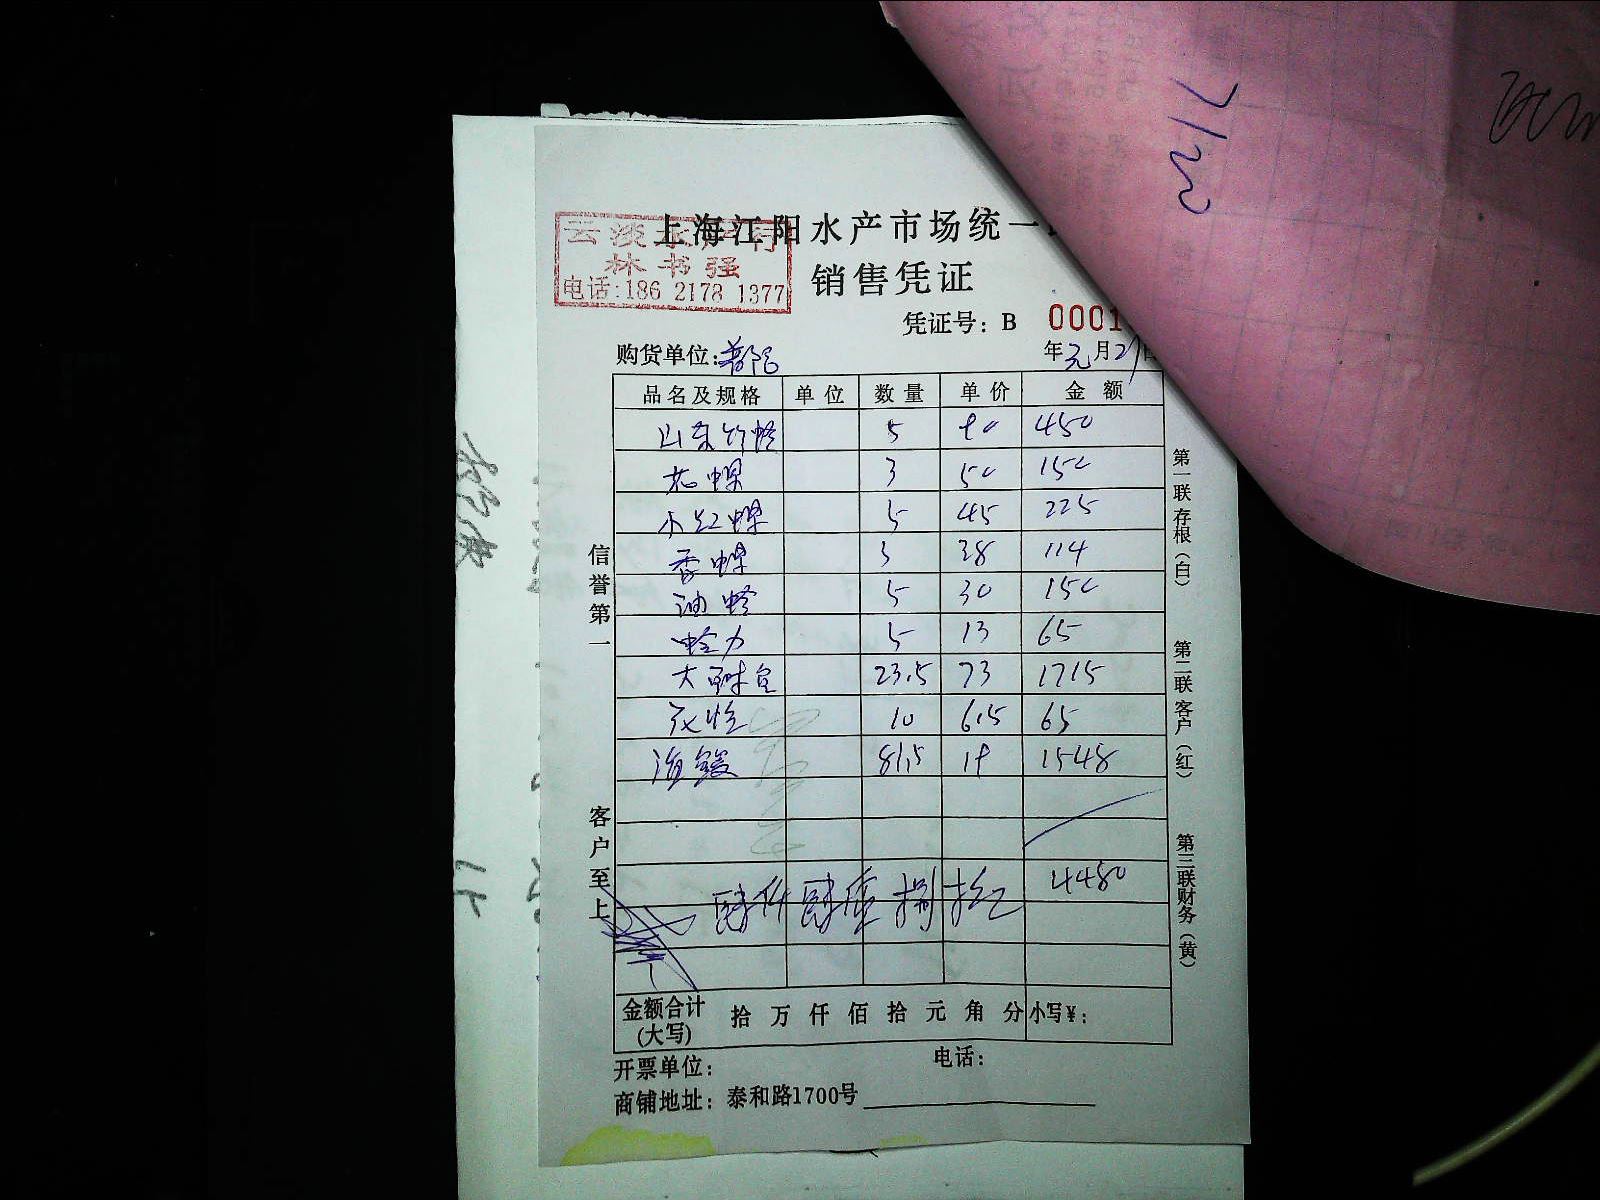 上海江阳水产市场统一
云淡水产行
林书强
电话:186 2178 1377
销售凭证
凭证号: B 0001
购货单位:
年元月21日
品名及规格 单位 数量 单价 金额
山东竹蛏 5 90 450
花螺 3 50 150
小红螺 5 45 225
香螺 3 38 114
油蛤 5 30 150
蛤力 5 13 65
大 23.5 73 1715
花蛤 10 6.5 65
海 81.5 19 1548
4480
肆仟肆佰捌拾元
金额合计(大写) 拾 万 仟 佰 拾 元 角 分 小写¥:
开票单位: 电话:
商铺地址: 泰和路1700号
信誉第一
客户至上
第一联存根(白)
第二联客户(红)
第三联财务(黄)
7/22